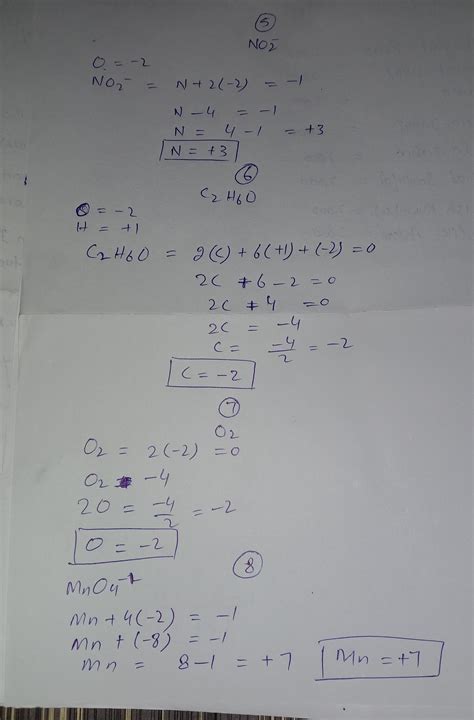 5
NO2-
O = -2
NO2- = N+2(-2) = -1
N-4 = -1
N = 4-1 = +3
N = +3
6
C2H6O
O = -2
H = +1
C2H6O = 2(C)+6(+1)+(-2)=0
2C +6 -2 =0
2C +4 =0
2C = -4
C = -4/2 = -2
C = -2
7
O2
O2 = 2(-2) =0
O2 = -4
2O = -4/2 = -2
O = -2
8
MnO4-1
Mn+4(-2) = -1
Mn+(-8) = -1
Mn = 8-1 = +7
Mn = +7